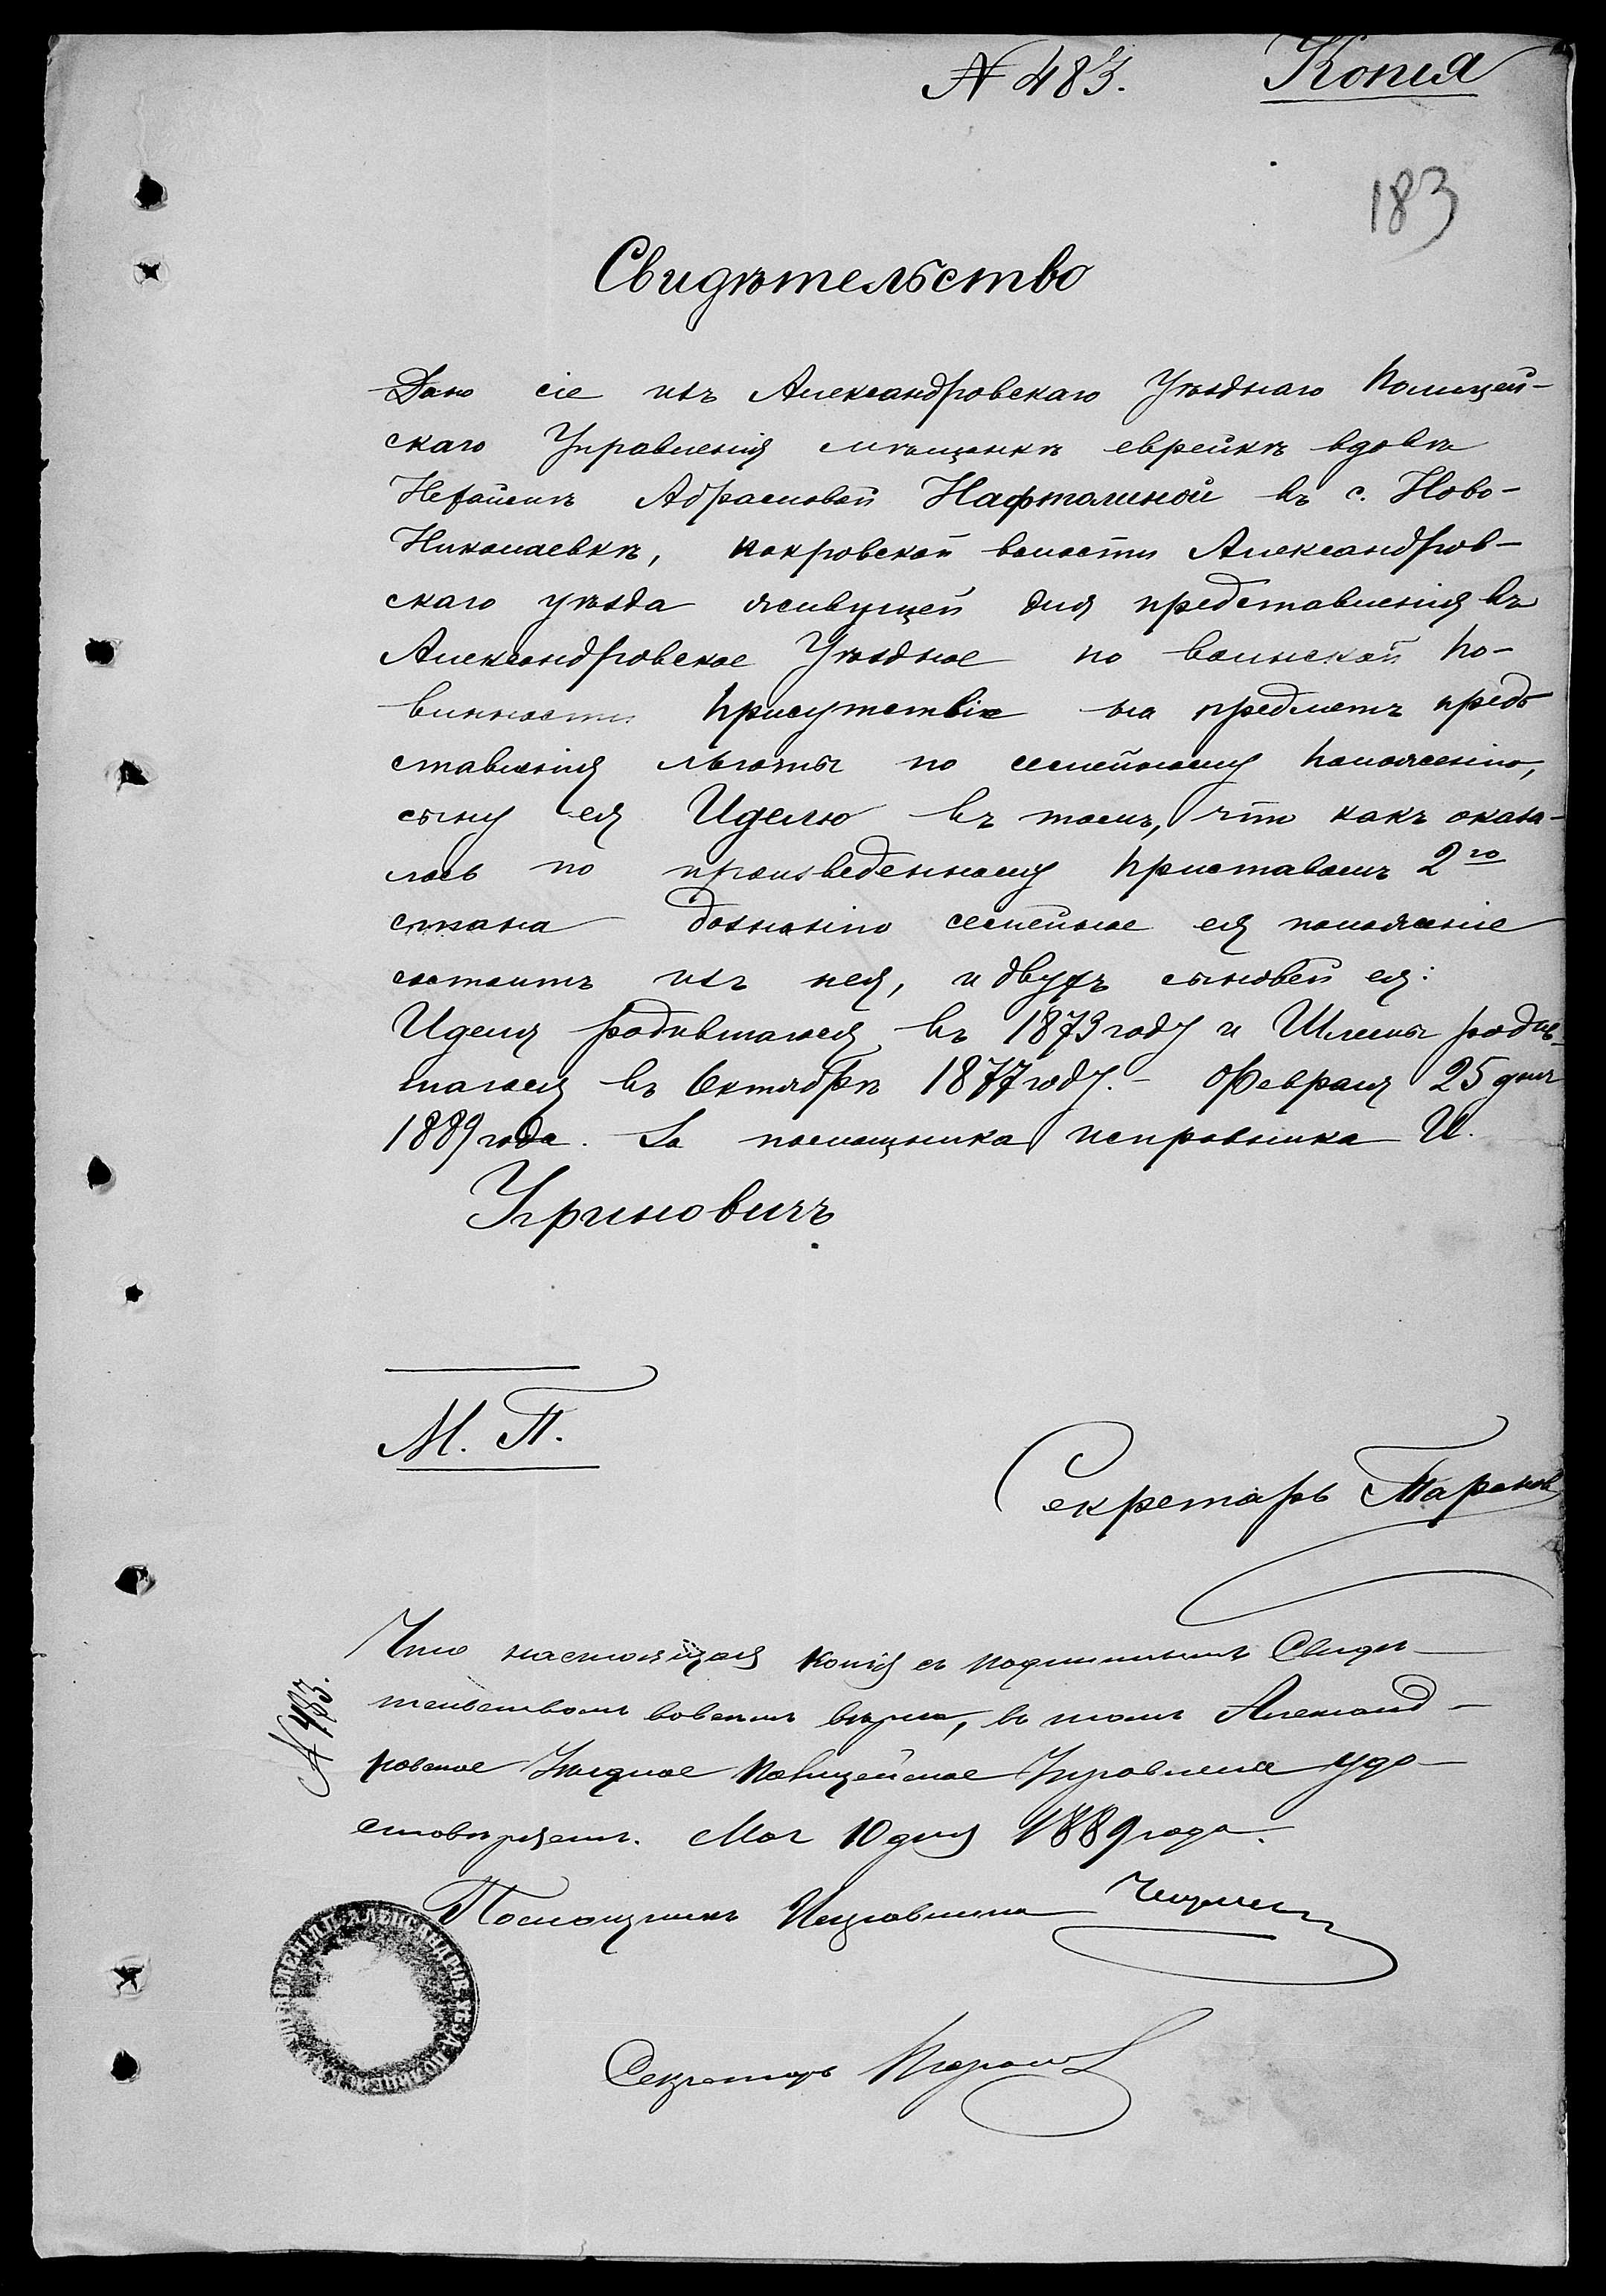 № 483. Копія
183
Свидѣтельство
Дано сіе изъ Александровскаго Уѣзднаго Полицей-
скаго Управленія мѣщанкѣ еврейкѣ вдовѣ
Абрамовой Нафталиной въ с. Ново-
Николаевкѣ, Покровской волости Александров-
скаго уѣзда живущей для представленія въ
Александровское Уѣздное по воинской по-
винности Присутствіе на предметъ предо
ставленія льготы по семейному положенію,
сыну ея Иделю въ томъ, что какъ оказа-
лось по произведенному Приставомъ 2го
стана дознанію семейное ея положеніе
состоитъ изъ нея, и двухъ сыновей ея:
Иделя родившагося въ 1873 году и Шлемы родив-
шагося въ Октябрѣ 1877 году. - Февраля 25 дня
1889 года. За помощника исправника И.
Угриновичъ.
М. П.
Секретарь Таранов
Что настоящая копія съ подлиннымъ Свидѣ-
тельствомъ вовсемъ вѣрна, въ томъ Александ-
ровское Уѣздное Полицейское Управленіе удо-
стовѣряетъ. Мая 10 дня 1889 года.
№ 483.
Помощникъ Исправника
Секретарь